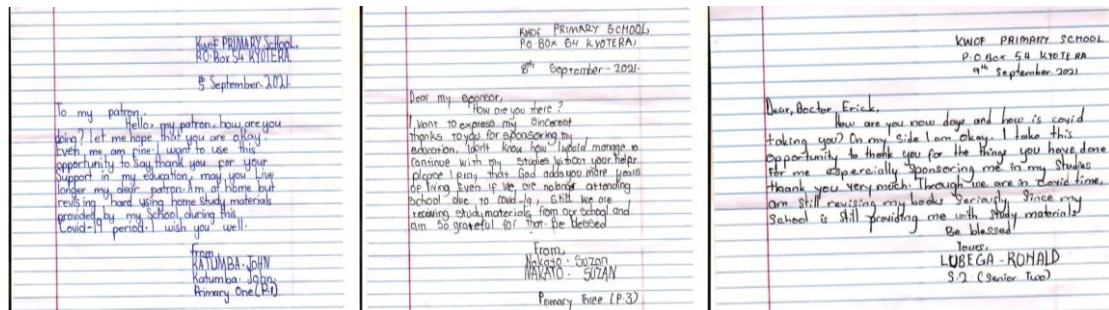 KWOF PRIMARY SCHOOL,
P.O-Box 54 KYOTERA
5 September-2021.
To my patron,
Hello, my patron, how are you
doing? let me hope that you are okay.
Even me am fine. I want to use this
opportunity to say thank you for your
support in my education, may you live
longer my dear patron. Am at home but
revising hard using home study materials
provided by my school during this
Covid-19 period. I wish you well.
from
KATUMBA-JOHN
Katumba-John.
Primary One (P.1)
KWOF PRIMARY SCHOOL,
PO-BOX 54 KYOTERA,
8th September-2021.
Dear my sponsor,
How are you there?
I want to express my sincerest
thanks to you for sponsoring my
education. I don't know how I would manage to
continue with my studies without your help
please I pray that God adds you more years
of living. Even if we are nolonger attending
school due to covid-19, still we are
receiving study materials from our school and
am so grateful for that. Be blessed
From,
Nakato-Suzan
NAKATO-SUZAN
Primary Three (P.3)
KWOF PRIMARY SCHOOL
P.O BOX 54 KYOTERA
9th September 2021
Dear, Doctor, Erick,
How are you now days and how is covid
taking you? On my side I am okay. I take this
opportunity to thank you for the thing you have done
for me especially sponsoring me in my studies
thank you very much. Through we are in covid time,
am still revising my books seriously since my
school is still providing me with study materials
Be blessed
Yours,
LUBEGA-RONALD
S.2 (Senior Two)